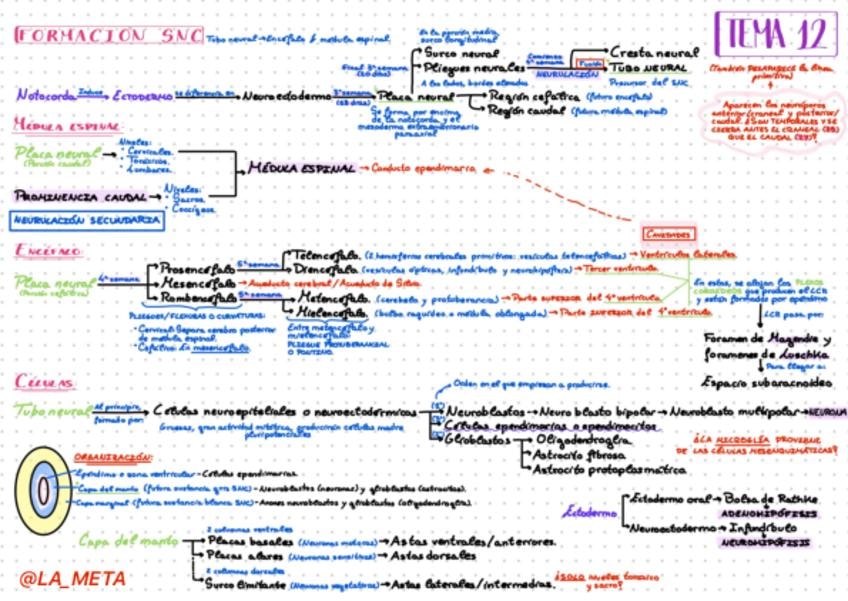 FORMACION SNC
Tubo neural → Encéfalo & médula espinal.
TEMA 12
En la porción media, surco longitudinal
Surco neural
Final 3ª semana
Pliegues neurales
A los lados, bordes elevados
Comienzo 4ª semana
NEURULACIÓN
Fusión
Cresta neural
TUBO NEURAL
Precursor del SNC
(También DESAPARECE la línea primitiva)
Notocorda Induce → ECTODERMO se diferencia en → Neuroectodermo 3ª semana → Placa neural
Región cefálica (futuro encéfalo)
Región caudal (futura médula espinal)
Se forma por encima de la notocorda y el mesodermo
paraxial
Aparecen los neuroporos anterior/craneal y posterior/caudal. ¡SON TEMPORALES Y SE CIERRA ANTES EL CRANEAL QUE EL CAUDAL
MÉDULA ESPINAL:
Placa neural
(Porción caudal)
Niveles:
· Cervicales.
· Torácicos.
· Lumbares.
MÉDULA ESPINAL → Conducto ependimario.
PROMINENCIA CAUDAL
Niveles:
· Sacros.
· Coccígeos.
NEURULACIÓN SECUNDARIA
CAVIDADES
ENCÉFALO:
Placa neural
(Porción cefálica)
4ª semana
Prosencéfalo 5ª semana
Telencéfalo. (2 hemisferios cerebrales primitivos: vesículas telencefálicas) → Ventrículos laterales.
Diencéfalo (vesículas ópticas, infundíbulo y neurohipófisis) → Tercer ventrículo.
Mesencéfalo → Acueducto cerebral/Acueducto de Silvio.
Rombencéfalo 5ª semana
Metencéfalo. (cerebelo y protuberancia) → Parte SUPERIOR del 4º ventrículo.
Mielencéfalo. (bulbo raquídeo o médula oblongada) → Parte INFERIOR del 4º ventrículo.
PLIEGUES/FLEXURAS O CURVATURAS:
· Cervical: Separa cerebro posterior de médula espinal.
· Cefálico: En mesencéfalo.
Entre metencéfalo y mielencéfalo:
PLIEGUE PROTUBERANCIAL O PONTINO.
En estas, se alojan los PLEXOS COROIDEOS que producen el LCR y están formados por epéndimo
LCR pasa por:
Foramen de Magendie y
foramenes de Luschka
Para llegar a:
Espacio subaracnoideo
CÉLULAS:
Orden en el que empiezan a producirse.
Tubo neural
Al principio, formado por:
Células neuroepiteliales o neuroectodérmicas
Gruesas, gran actividad mitótica, producirán células madre pluripotenciales
Neuroblastos → Neuroblasto bipolar → Neuroblasto multipolar → NEURONA
Células ependimarias o ependimocitos
Glioblastos
Oligodendroglia.
Astrocito fibroso.
Astrocito protoplasmático.
¿LA MICROGLÍA PROVIENE DE LAS CÉLULAS MESENQUIMÁTICAS?
ORGANIZACIÓN:
Epéndimo o zona ventricular - Células ependimarias.
Capa del manto (futura sustancia gris SNC) - Neuroblastos (neuronas) y glioblastos (astrocitos).
Capa marginal (futura sustancia blanca SNC) - Axones neuroblastos y glioblastos (oligodendroglia).
Ectodermo
Ectodermo oral → Bolsa de Rathke
ADENOHIPÓFISIS
Neuroectodermo → Infundíbulo
NEUROHIPÓFISIS
Capa del manto
2 columnas ventrales
Placas basales (Neuronas motoras) → Astas ventrales/anteriores.
Placas alares (Neuronas sensitivas) → Astas dorsales
2 columnas dorsales
Surco limitante (Neuronas vegetativas) → Astas laterales/intermedias.
¿SOLO niveles torácico y sacro?
@LA_META